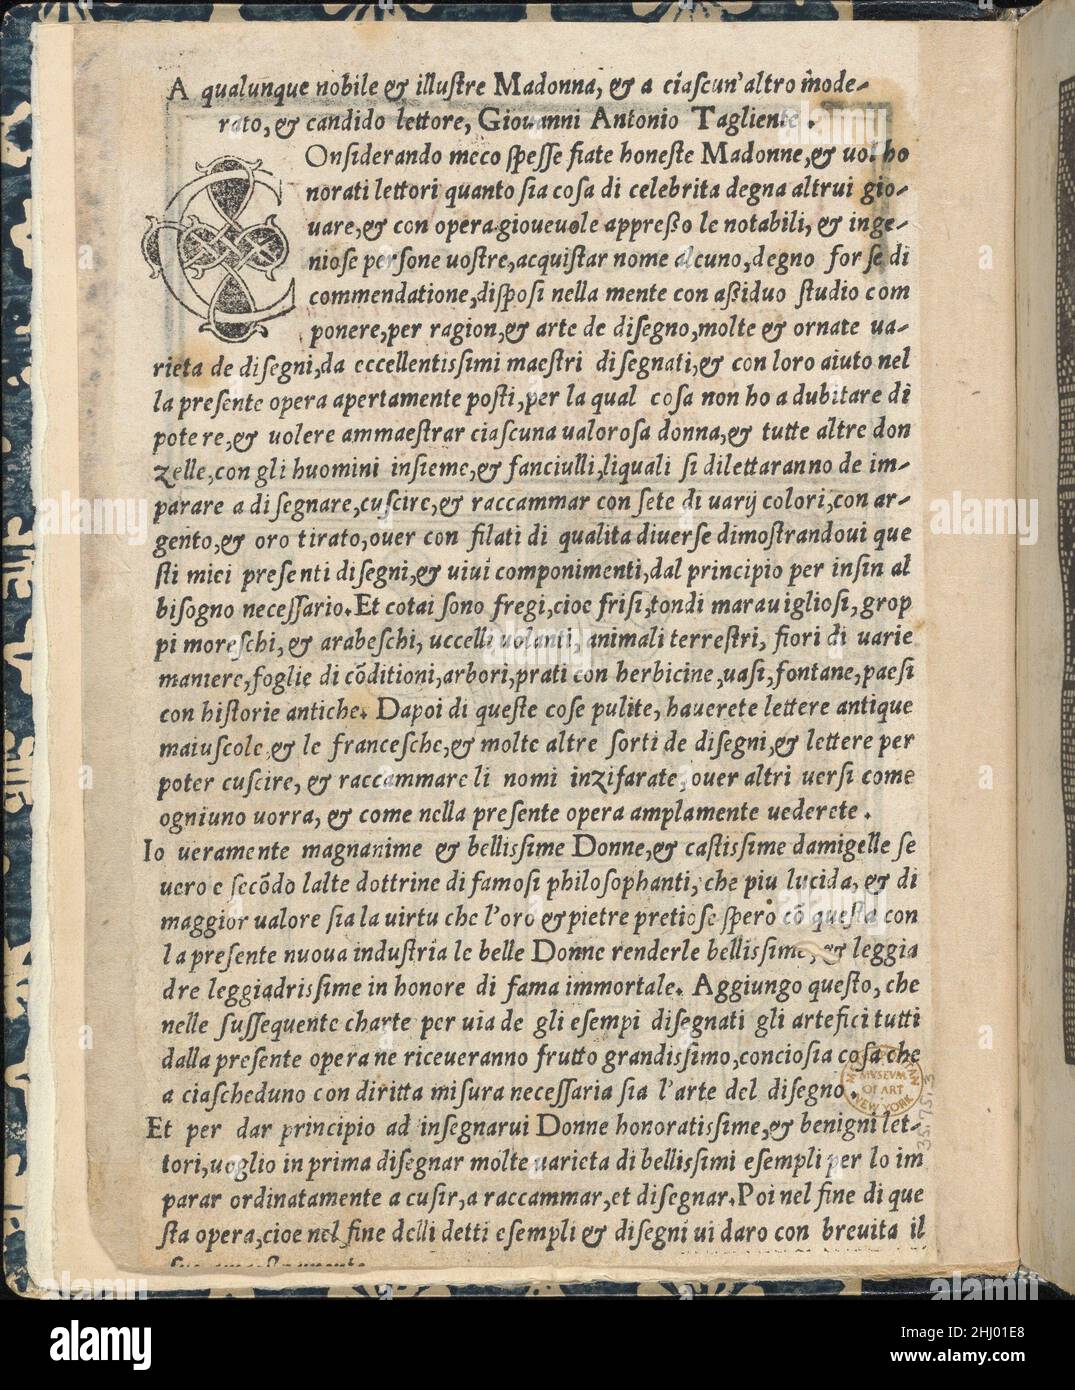 A qualunque nobile & illuſtre Madonna, & a ciaſcun'altro mode-
rato, & candido lettore, Giouanni Antonio Tagliente .
COnſiderando meco ſpeſſe fiate honeſte Madonne, & uoi ho
norati lettori quanto ſia coſa di celebrita degna altrui gio-
uare, & con opera gioueuole appreßo le notabili, & inge-
nioſe perſone uoſtre, acquiſtar nome alcuno, degno forſe di
commendatione, diſpoſi nella mente con aßiduo ſtudio com
ponere, per ragion, & arte de diſegno, molte & ornate ua-
rieta de diſegni, da eccellentiſſimi maeſtri diſegnati, & con loro aiuto nel
la preſente opera apertamente poſti, per la qual coſa non ho a dubitare di
potere, & uolere ammaeſtrar ciaſcuna ualoroſa donna, & tutte altre don
zelle, con gli huomini inſieme, & fanciulli, liquali ſi dilettaranno de im-
parare a diſegnare, cuſcire, & raccammar con ſete di uarij colori, con ar-
gento, & oro tirato, ouer con filati di qualita diuerſe dimoſtrandoui que
ſti miei preſenti diſegni, & uiui componimenti, dal principio per inſin al
biſogno neceſſario. Et cotai ſono fregi, cioe friſi, tondi marauiglioſi, grop
pi moreſchi, & arabeſchi, uccelli uolanti, animali terreſtri, fiori di uarie
maniere, foglie di cõditioni, arbori, prati con herbicine, uaſi, fontane, paeſi
con hiſtorie antiche. Dapoi di queſte coſe pulite, hauerete lettere antique
maiuſcole, & le franceſche, & molte altre ſorti de diſegni, & lettere per
poter cuſcire, & raccammare li nomi inzifarate, ouer altri uerſi come
ogniuno uorra, & come nella preſente opera amplamente uederete .
Io ueramente magnanime & belliſſime Donne, & caſtiſſime damigelle ſe
uero e ſecõdo lalte dottrine di famoſi philoſophanti, che piu lucida, & di
maggior ualore ſia la uirtu che l'oro & pietre pretioſe ſpero cõ queſta con
la preſente nuoua induſtria le belle Donne renderle belliſſime, & leggia
dre leggiadriſſime in honore di fama immortale. Aggiungo queſto, che
nelle ſuſſequente charte per uia de gli eſempi diſegnati gli artefici tutti
dalla preſente opera ne riceueranno frutto grandiſſimo, concioſia coſa che
a ciaſcheduno con diritta miſura neceſſaria ſia l'arte del diſegno .
Et per dar principio ad inſegnarui Donne honoratiſſime, & benigni let-
tori, uoglio in prima diſegnar molte uarieta di belliſſimi eſempli per lo im
parar ordinatamente a cuſir, a raccammar, et diſegnar. Poi nel fine di que
ſta opera, cioe nel fine delli detti eſempli & diſegni ui daro con breuita il
MUSEUM
OF ART
NEW YORK
alamy
Image ID: 2HJ01E8
www.alamy.com